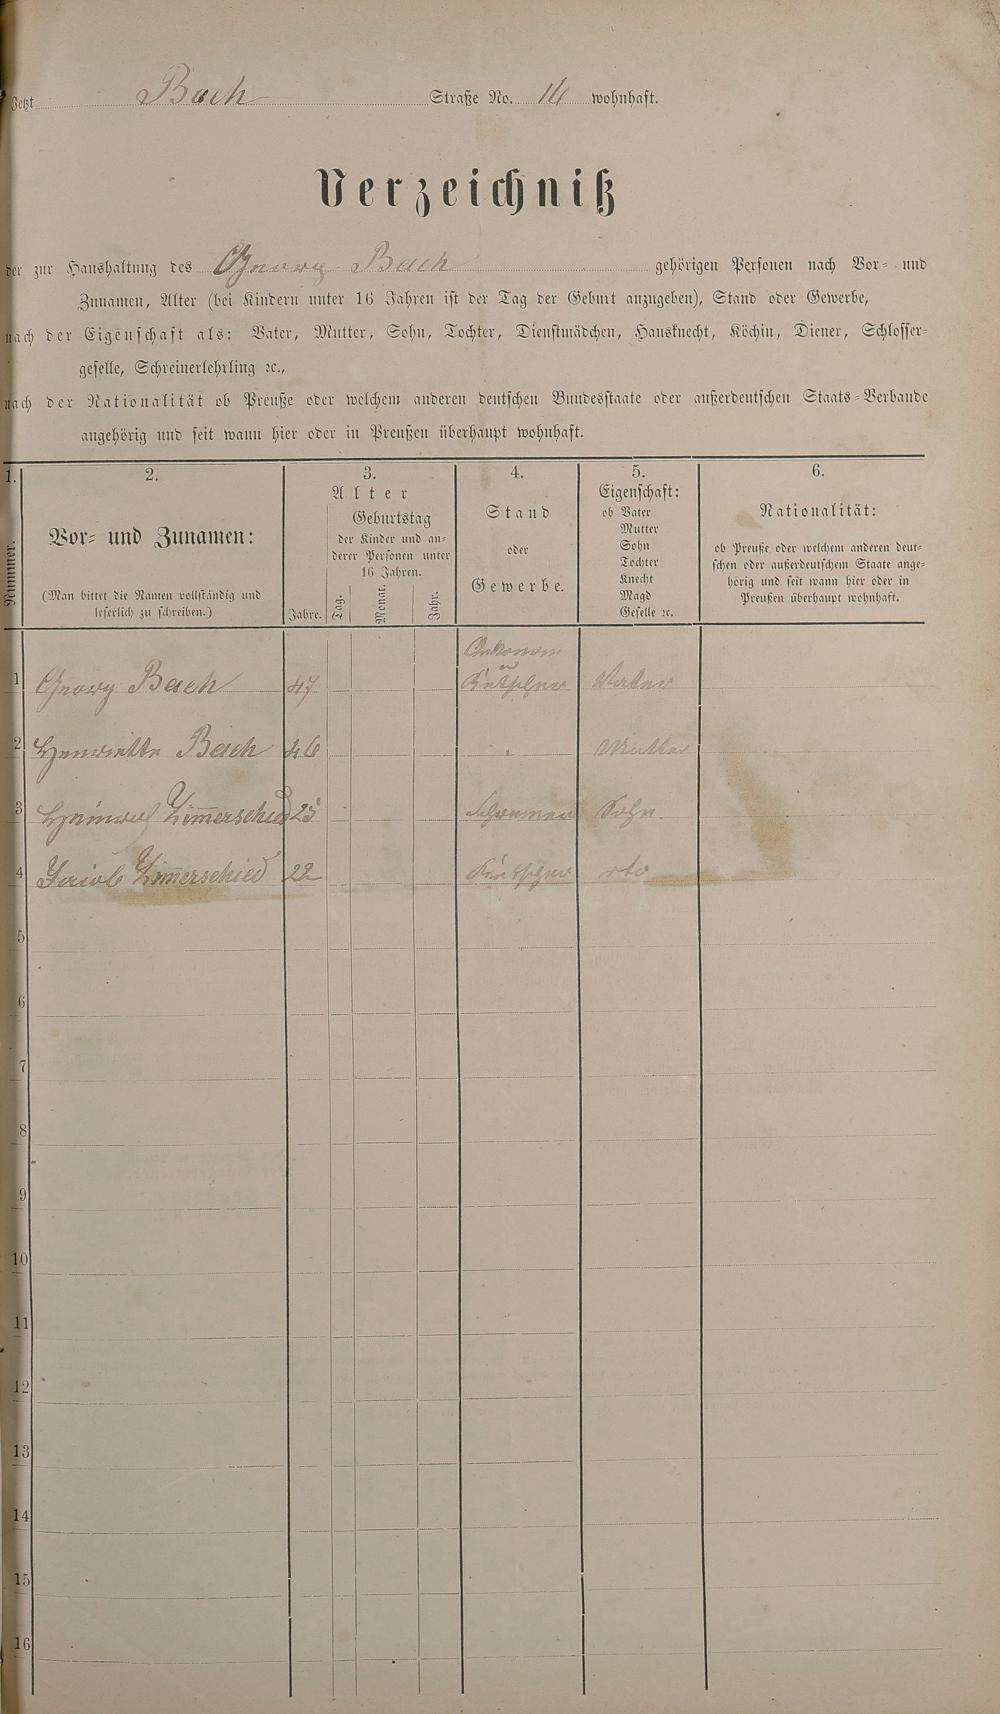 Jetzt Bach Straße No. 16 wohnhaft.
Verzeichniß
der zur Haushaltung des Georg Bach gehörigen Personen nach Vor- und
Zunamen, Alter (bei Kindern unter 16 Jahren ist der Tag der Geburt anzugeben), Stand oder Gewerbe,
nach der Eigenschaft als: Vater, Mutter, Sohn, Tochter, Dienstmädchen, Hausknecht, Köchin, Diener, Schlosser-
geselle, Schreinerlehrling ꝛc.,
nach der Nationalität ob Preuße oder welchem anderen deutschen Bundesstaate oder außerdeutschen Staats-Verbande
angehörig und seit wann hier oder in Preußen überhaupt wohnhaft.
1. 2. 3. 4. 5. 6.
Nummer.
Vor- und Zunamen:
(Man bittet die Namen vollständig und
leserlich zu schreiben.)
Alter
Jahre.
Geburtstag
der Kinder und an-
derer Personen unter
16 Jahren.
Tag. Monat. Jahr.
Stand
oder
Gewerbe.
Eigenschaft:
ob Vater
Mutter
Sohn
Tochter
Knecht
Magd
Geselle ꝛc.
Nationalität:
ob Preuße oder welchem anderen deut-
schen oder außerdeutschem Staate ange-
hörig und seit wann hier oder in
Preußen überhaupt wohnhaft.
Oekonom
u
1 Georg Bach 47 Kutscher Vater
2 Henriette Bach 46 Mutter
3 Heinrich Zim̅erschied 25 Schreiner Sohn.
4 Jacob Zimerschied 22 Kutscher dto
5
6
7
8
9
10
11
12
13
14
15
16